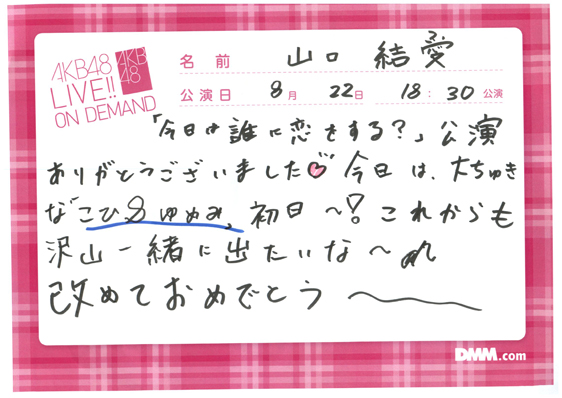 AKB48
LIVE!!
ON DEMAND
AKB
48
名前 山口 結愛
公演日 8月 22日 18:30 公演
「今日は誰に恋をする?」公演
ありがとうございました♡ 今日は、大ちゅき
な"こひ ゆぬみ、初日〜!これからも
沢山一緒に出たいな〜
改めておめでとう〜
DMM.com